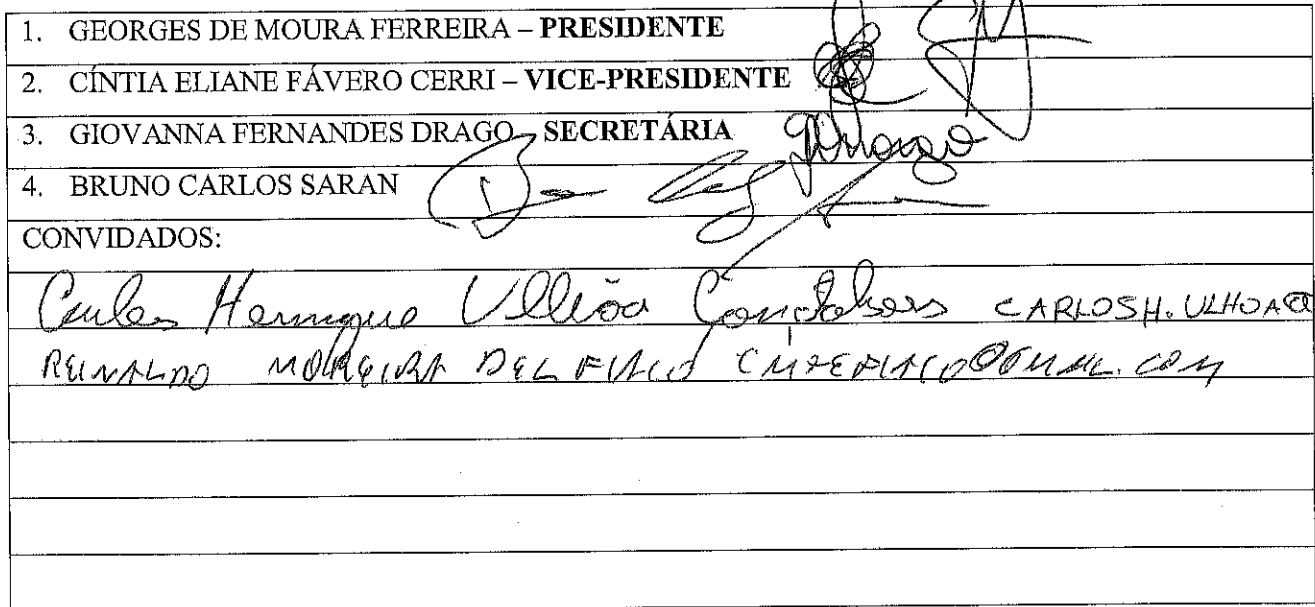 1. GEORGES DE MOURA FERREIRA – PRESIDENTE
2. CÍNTIA ELIANE FÁVERO CERRI – VICE-PRESIDENTE
3. GIOVANNA FERNANDES DRAGO – SECRETÁRIA
4. BRUNO CARLOS SARAN
CONVIDADOS:
Carlos Henrique CARLOSH.ULHOA@
REINALDO MOREIRA DEL FIACO